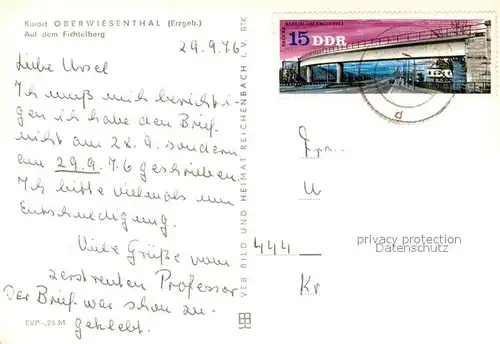 Kurort OBERWIESENTHAL (Erzgeb.)
Auf dem Fichtelberg
29.9.76
Liebe Ursel
Ich muß mich bericht i
gen ich habe den Brief
nicht am 28.9. sondern
am 29.9.76 geschrieben.
Ich bitte vielmals um
Entschuldigung.
Viele Grüße vom
zerstreuten Professor
Der Brief war schon zu-
geklebt.
EVP -,25 M
VEB BILD UND HEIMAT REICHENBACH i. V. BfK
BERLIN-ADLERGESTELL
15 DDR
d
Frau
U
444
Kr
privacy protection
Datenschutz